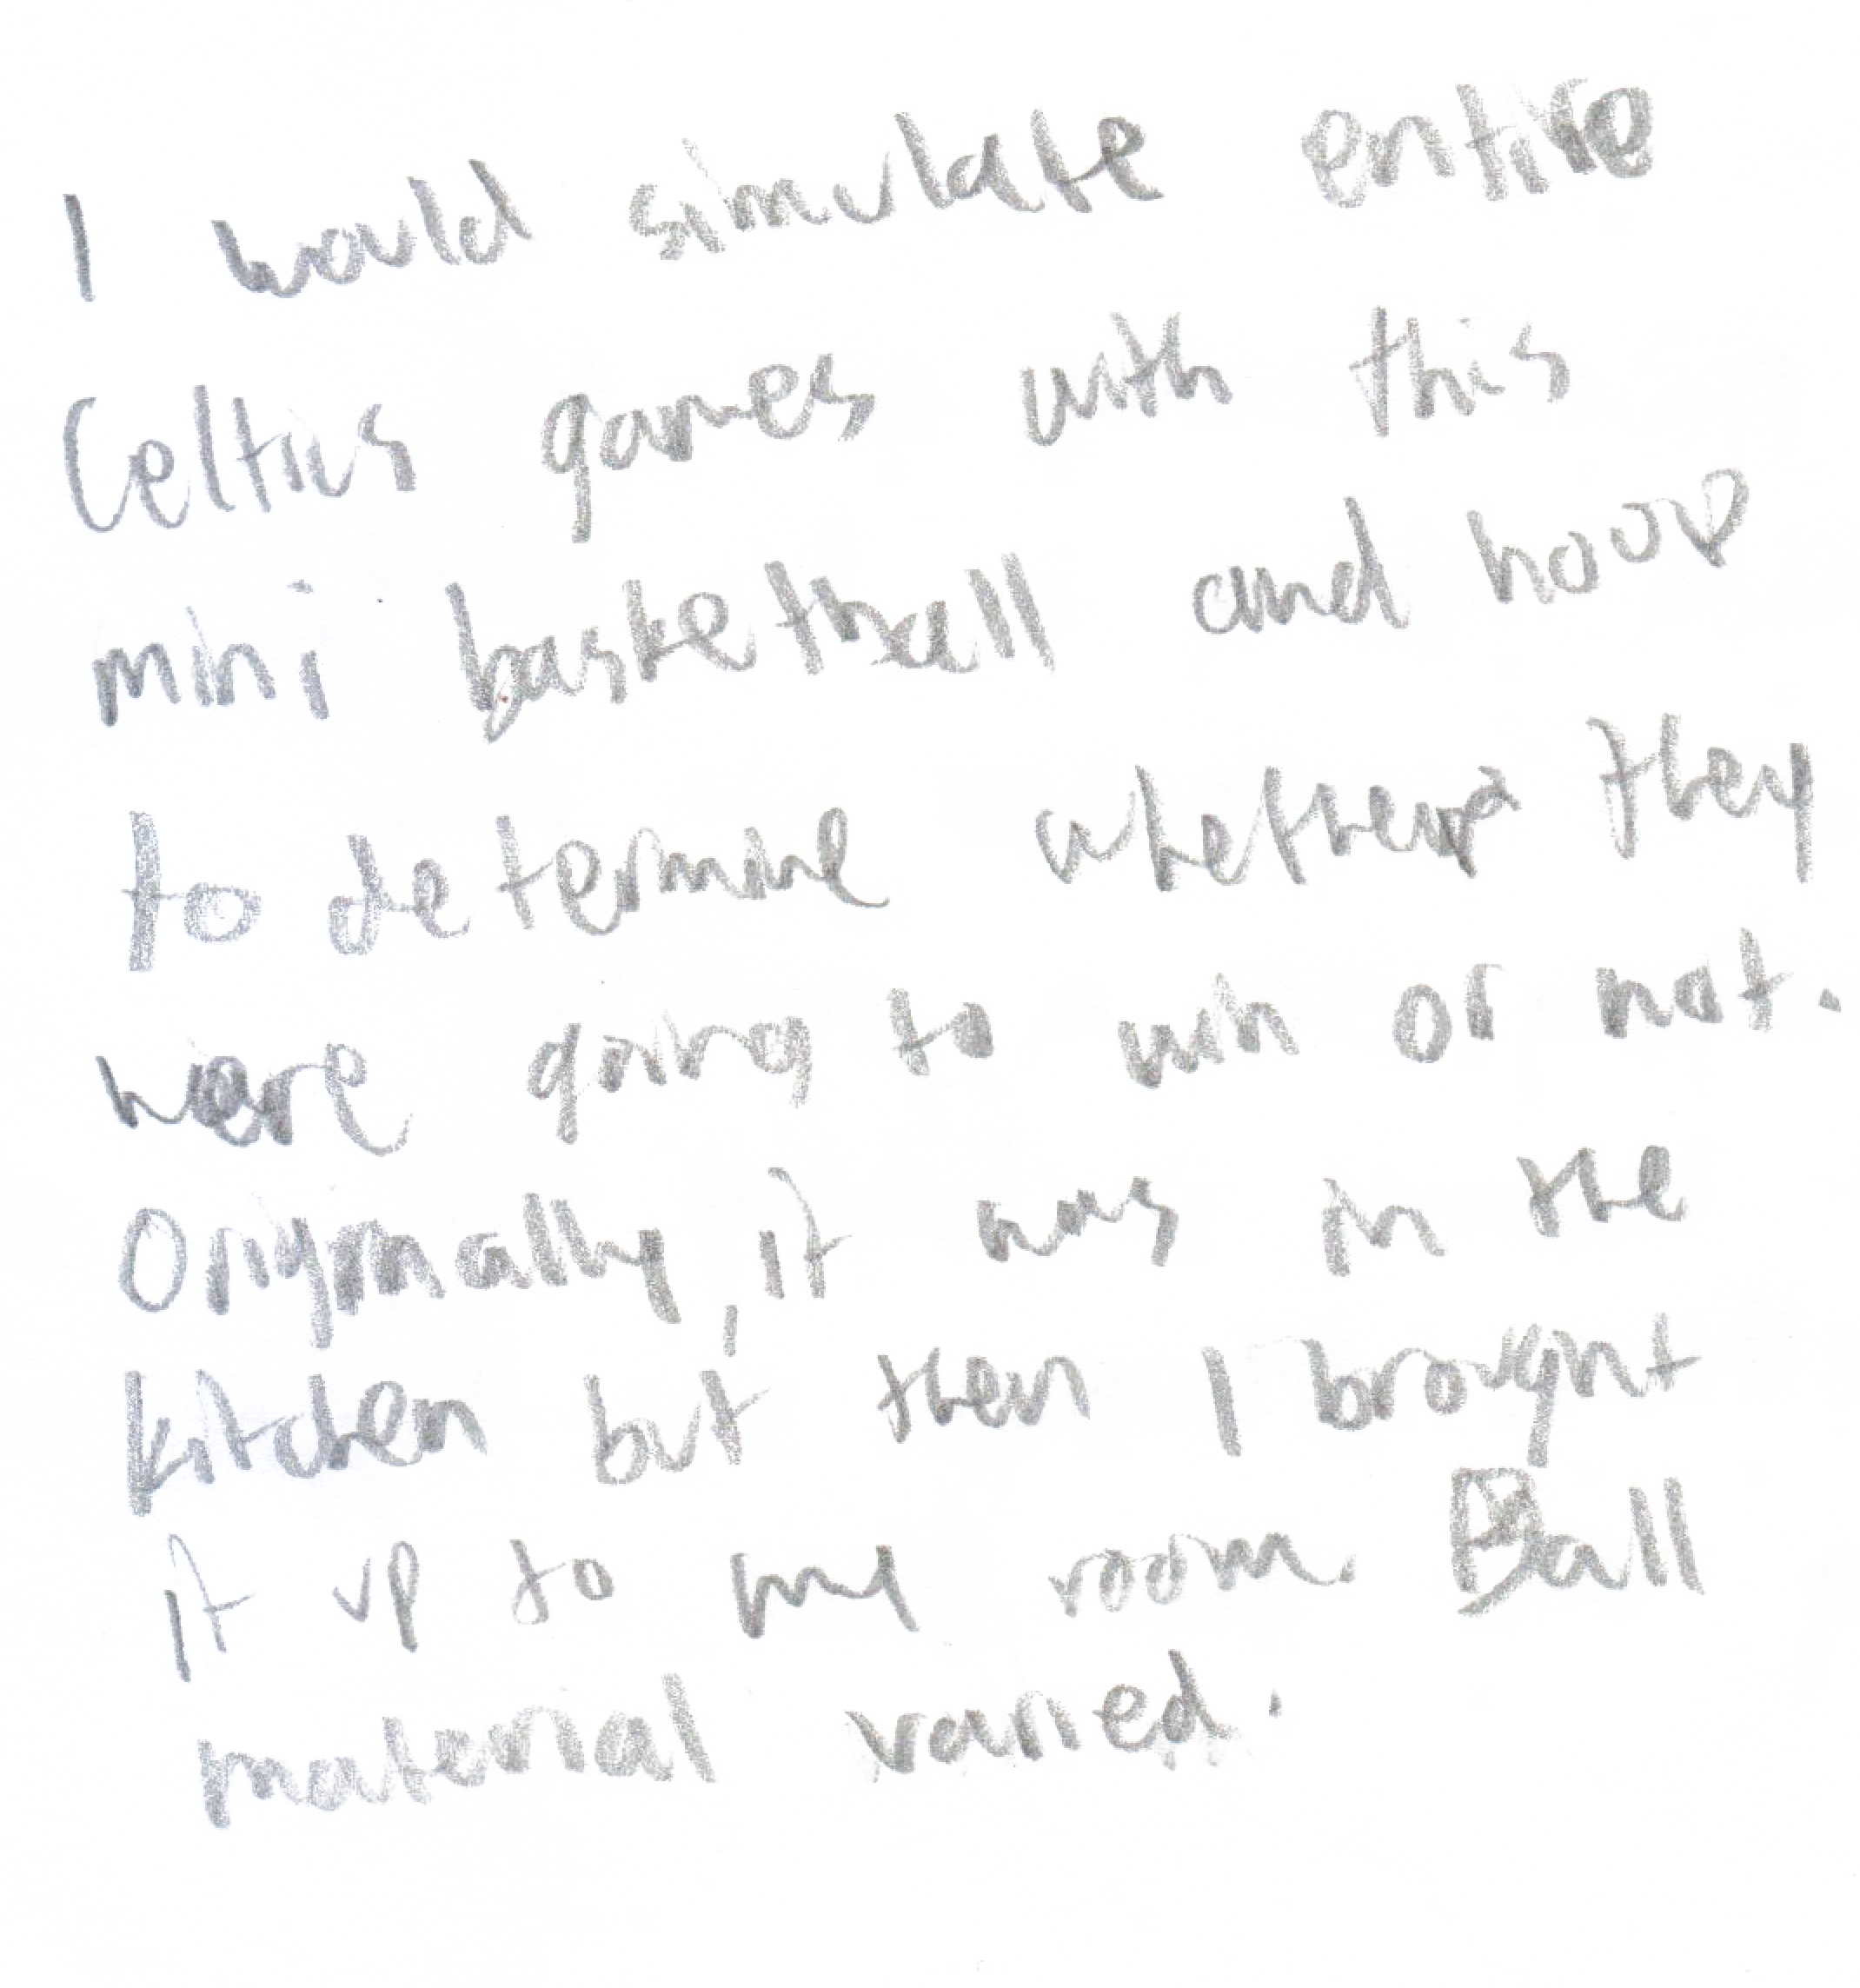 I would simulate entire
Celtics games with this
mini basketball and hoop
to determine whether they
were going to win or not.
Originally, it was in the
kitchen but then I brought
it up to my room. Ball
material varied.